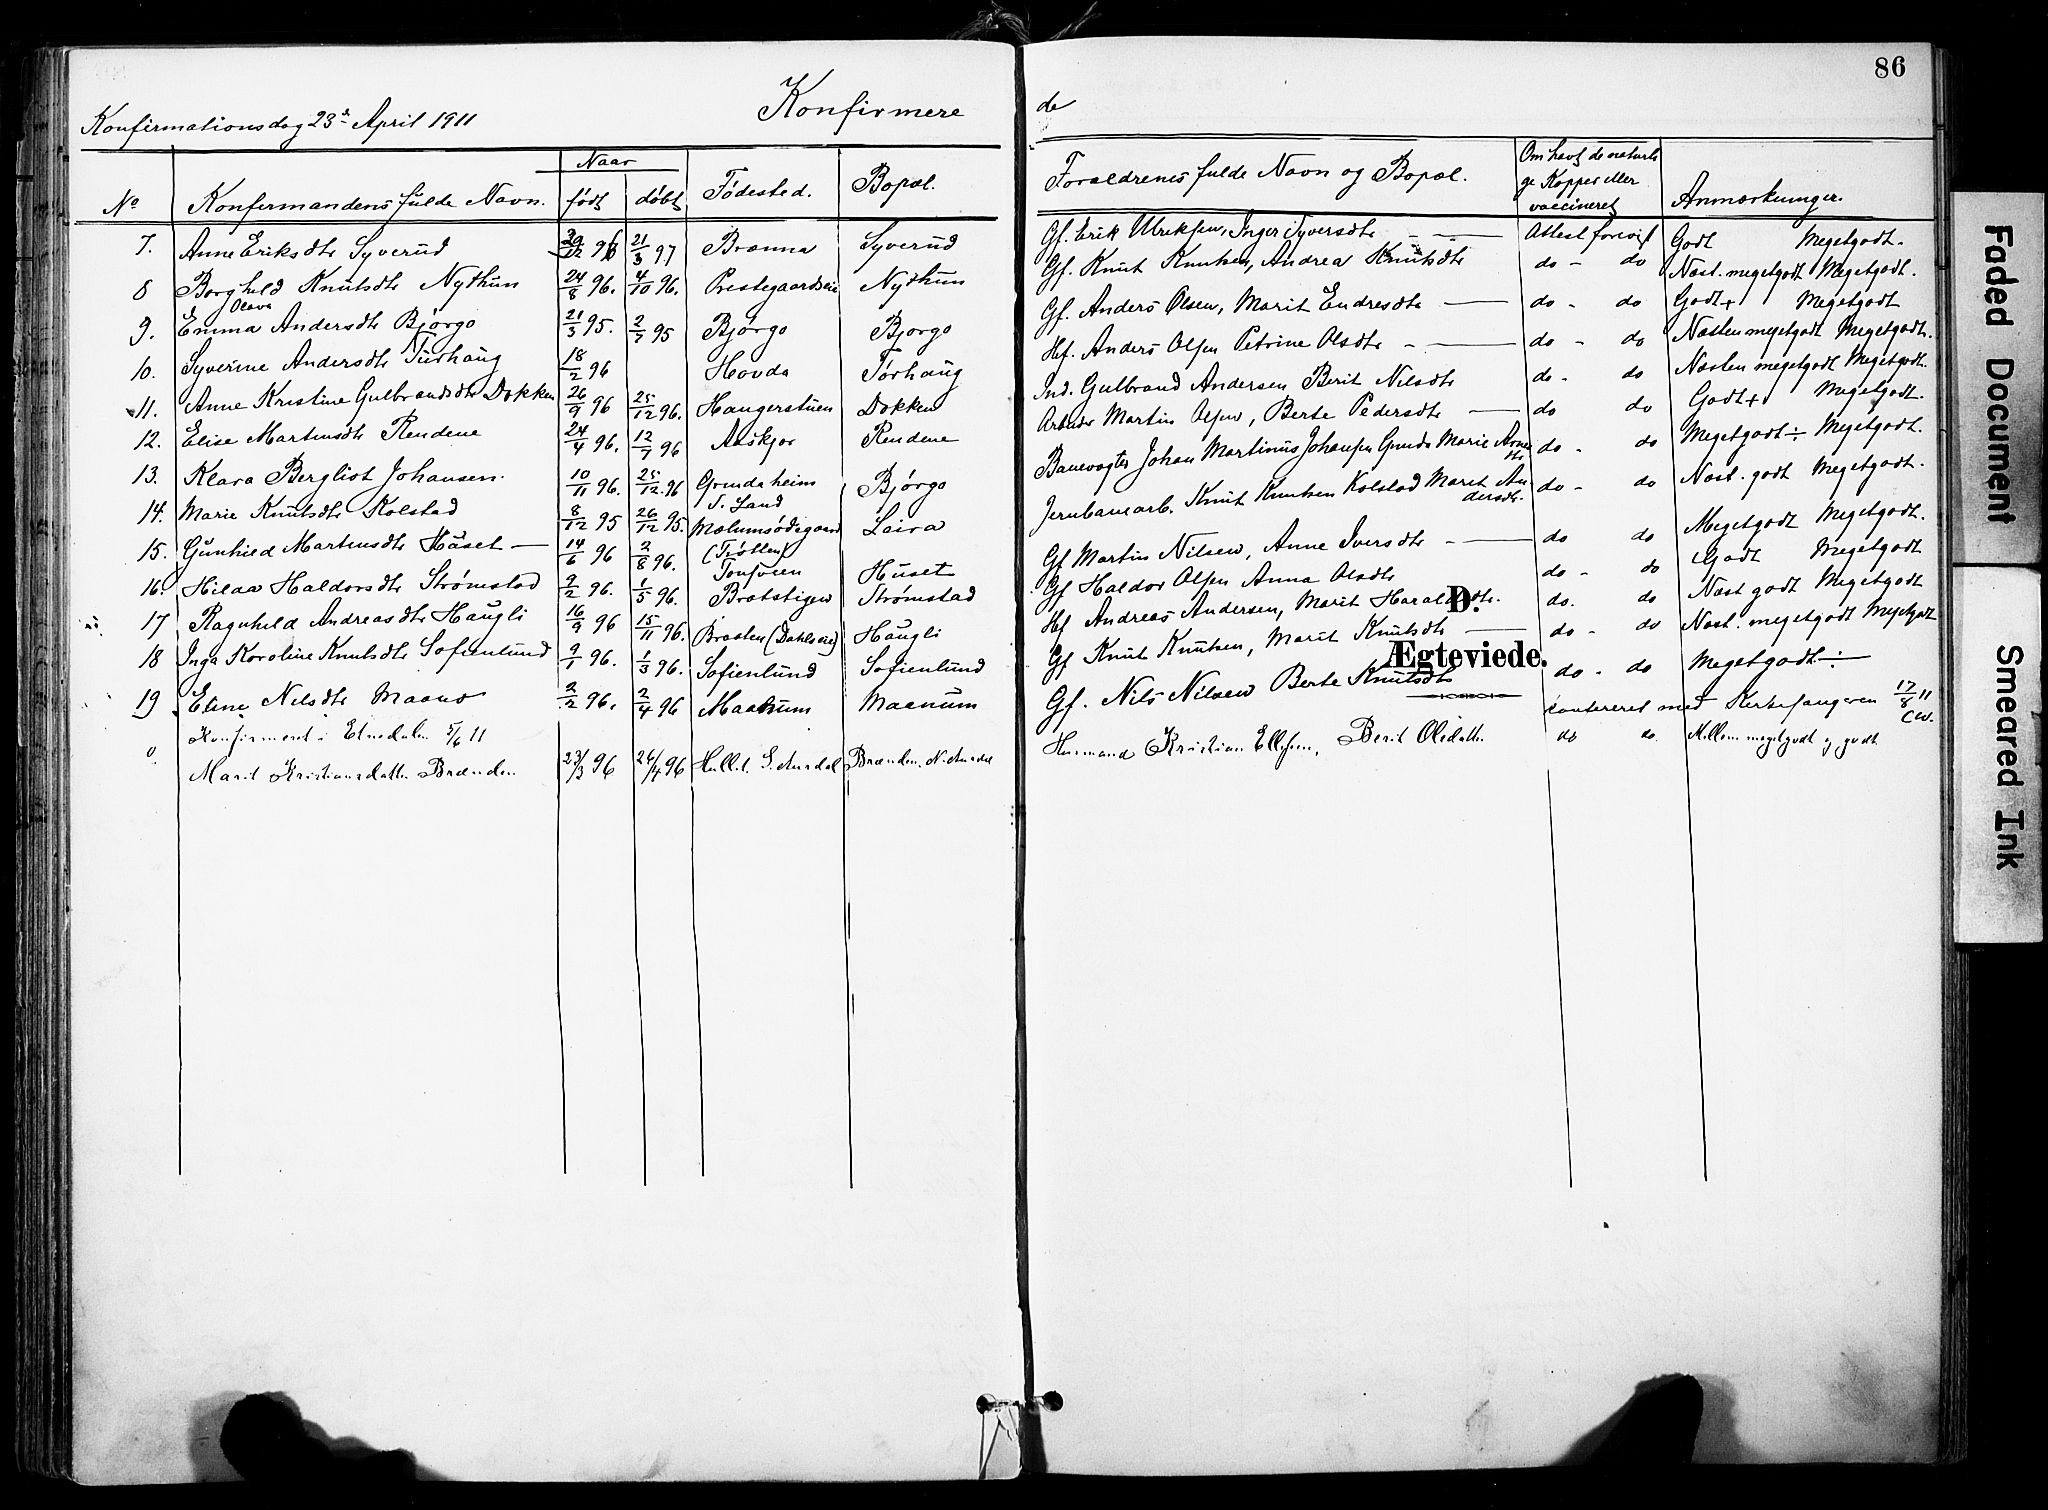 86
Konfirmationsdag 23de April 1911 Konfirmere de
No Konfirmandens fulde Navn. Naar født døbt Fødested. Bopæl. Forældrenes fulde Navn og Bopæl. Om havt de naturli
ge Kopper eller
vaccineret Anmærkninger.
7. Anne Eriksdtr Syverud 29/12 96 21/3 97 Brænna Syverud Gf. Erik Ulriksen, Inger Syversdtr Attest forevist Godt Megetgodt.
8 Borghild Knutsdtr Nythun 24/8 96. 4/10 96. Prestegaardseie Nythun Gf. Knut Knutsen, Andrea Knutsdtr do - do Næst. megetgodt Megetgodt.
Olava
9. Emma Andersdtr Bjørgo 21/3 95. 2/7 95 Bjørgo Bjørgo Gf. Anders Olsen, Marit Endresdtr do - do Godt+ Megetgodt
10. Syverine Andersdtr Turhaug 18/2 96 Hovda Torhaug Hf. Anders Olsen Petrine Olsdtr do - do Næsten megetgodt Megetgodt.
11. Anne Kristine Gulbrandsdtr Dokken 26/9 96 25/12 96. Haugerstuen Dokken Ind. Gulbrand Andersen Berit Nilsdtr do - do Næsten megetgodt Megetgodt.
12. Elise Martinsdtr Rendene 24/4 96. 12/7 96 Aaskjær Rendene Arbeider Martin Olsen, Berte Pedersdtr do do Godt+ Megetgodt.
13. Klara Bergliot Johansen. 10/11 96. 25/12 96 Grindaheim
S. Land Bjørgo Banevogter Johan Martinus Johansen Gunda Marie Arnes
dtr do - do Megetgodt÷ Megetgodt.
14. Marie Knutsdtr Kolstad 8/12 95 26/12 95. Molumsødegaard Leira Jernbanearb. Knut Knutsen Kolstad Marit An
dersdtr. do - do Næst. godt Megetgodt.
15. Gunhild Martinsdtr Huset 14/6 96 2/8 96. (Trøllen)
Tonsveien Huset Gf Martin Nilsen, Anne Iversdtr do do Megetgodt Megetgodt.
16. Hilda Haldorsdtr Strømstad 2/2 96. 1/5 96. Bratstigen Strømstad Gf Haldor Olsen Anna Olsdtr do - do Godt Megetgodt
17 Ragnhild Andreasdtr Haugli 16/9 96 15/11 96. Braaten (Dahlseie) Haugli Hf Andreas Andersen, Marit Haraldsdtr. do. do Næst godt Megetgodt
18 Inga Karoline Knutsdtr Sofienlund 9/1 96. 1/3 96. Sofienlund Sofienlund Gf Knut Knutsen, Marit Knutsdtr do - do Næst. megetgodt Megetgodt
19 Eline Nilsdtr Maano 2/2 96. 2/4 96 Maanum Maanum Gf. Nils Nilsen Berte Knutsdtr do - do Megetgodt÷
D.
Ægteviede.
Konfirmeret i Etnedalen 5/6 11 Confereret med Kirkesangeren 17/8 11
CW.
Marit Kristiansdatter Brænden 23/3 96 26/4 96 S. Aurdal Brænden, N. Aurdal Husmand Kristian Ellefsen, Berit Olsdatter do do. Mellem megetgodt og godt
Faded Document
Smeared Ink